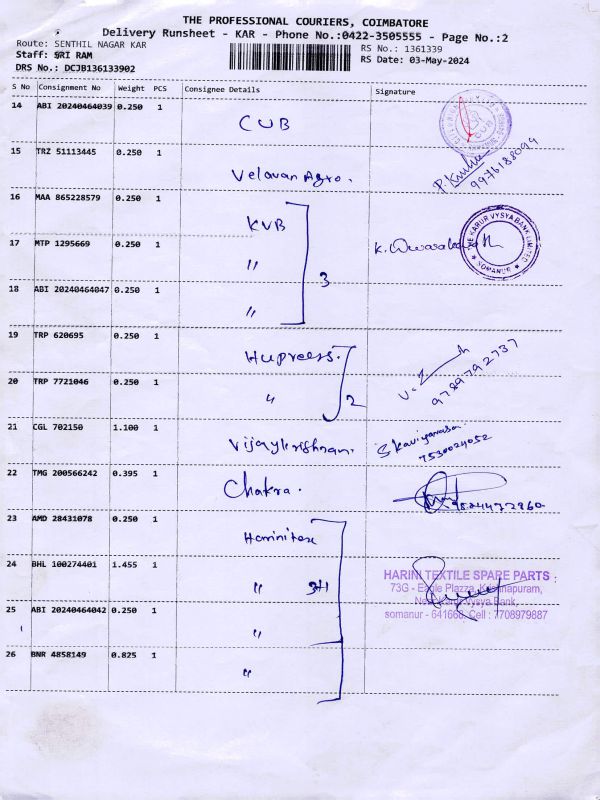 THE PROFESSIONAL COURIERS, COIMBATORE
Delivery Runsheet - KAR - Phone No.:0422-3505555 - Page No.:2
Route: SENTHIL NAGAR KAR
RS No.: 1361339
Staff: SRI RAM
RS Date: 03-May-2024
DRS No.: DCJB136133902
S No Consignment No Weight PCS Consignee Details Signature
14 ABI 20240464039 0.250 1 CUB
15 TRZ 51113445 0.250 1 Velavan Agro.
9976188099
16 MAA 865228579 0.250 1 KVB
17 MTP 1295669 0.250 1 "
THE KARUR VYSYA BANK LIMITED
SOMANUR
3
18 ABI 20240464047 0.250 1 "
19 TRP 620695 0.250 1
9789792737
20 TRP 7721046 0.250 1 " 2
21 CGL 702150 1.100 1
7530024052
22 TMG 200566242 0.395 1 Chakra.
23 AMD 28431078 0.250 1
24 BHL 100274401 1.455 1 " 3+1
HARINI TEXTILE SPARE PARTS
73G - Eagle Plazza, Krishnapuram,
Near Karur Vysya Bank,
somanur - 641668. Cell : 7708979887
25 ABI 20240464042 0.250 1 "
26 BNR 4858149 0.825 1 "